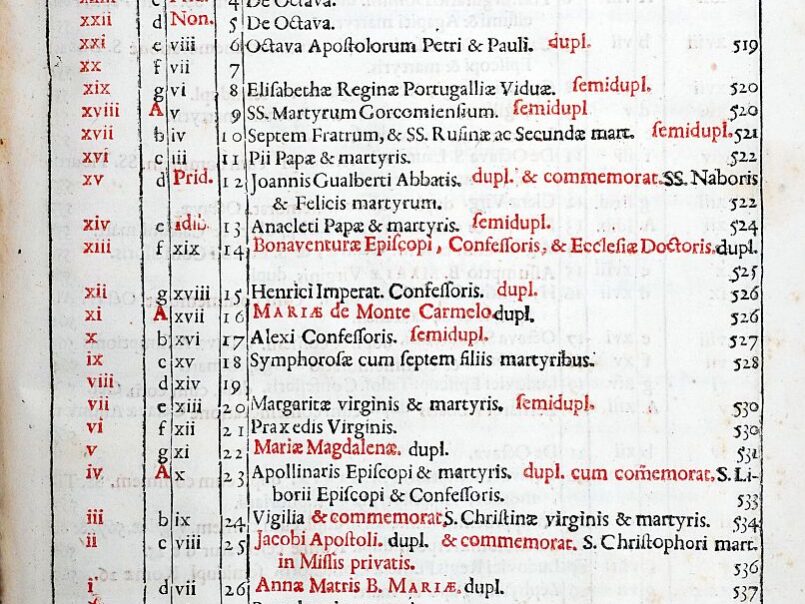 xxii c Prid. 4 De Octava.
xxii d Non. 5 De Octava.
xxi e viii 6 Octava Apoſtolorum Petri & Pauli. dupl. 519
xx f vii 7
xix g vi 8 Eliſabethæ Reginæ Portugalliæ Viduæ. ſemidupl. 520
xviii A v 9 SS. Martyrum Gorcomienſium. ſemidupl 520
xvii b iv 10 Septem Fratrum, & SS. Rufinæ ac Secundæ mart. ſemidupl. 521
xvi c iii 11 Pii Papæ & martyris. 522
xv d Prid. 12 Joannis Gualberti Abbatis. dupl. & commemorat. SS. Naboris
& Felicis martyrum. 522
xiv e idib. 13 Anacleti Papæ & martyris. ſemidupl. 524
xiii f xix 14 Bonaventuræ Epiſcopi, Confeſſoris, & Eccleſiæ Doctoris. dupl.
525
xii g xviii 15 Henrici Imperat. Confeſſoris. dupl. 526
xi A xvii 16 MARIÆ de Monte Carmelo. dupl. 526
x b xvi 17 Alexi Confeſſoris. ſemidupl. 527
ix c xv 18 Symphoroſæ cum ſeptem filiis martyribus. 528
viii d xiv 19
vii e xiii 20 Margaritæ virginis & martyris. ſemidupl. 530
vi f xii 21 Praxedis Virginis. 530
v g xi 22 Mariæ Magdalenæ. dupl. 531
iv A x 23 Apollinaris Epiſcopi & martyris. dupl. cum com̃emorat. S. Li-
borii Epiſcopi & Confeſſoris. 533
iii b ix 24 Vigilia & commemorat. S. Chriſtinæ virginis & martyris. 534
ii c viii 25 Jacobi Apoſtoli. dupl. & commemorat. S. Chriſtophori mart.
in Miſſis privatis. 536
i d vii 26 Annæ Matris B. MARIÆ. dupl. 537